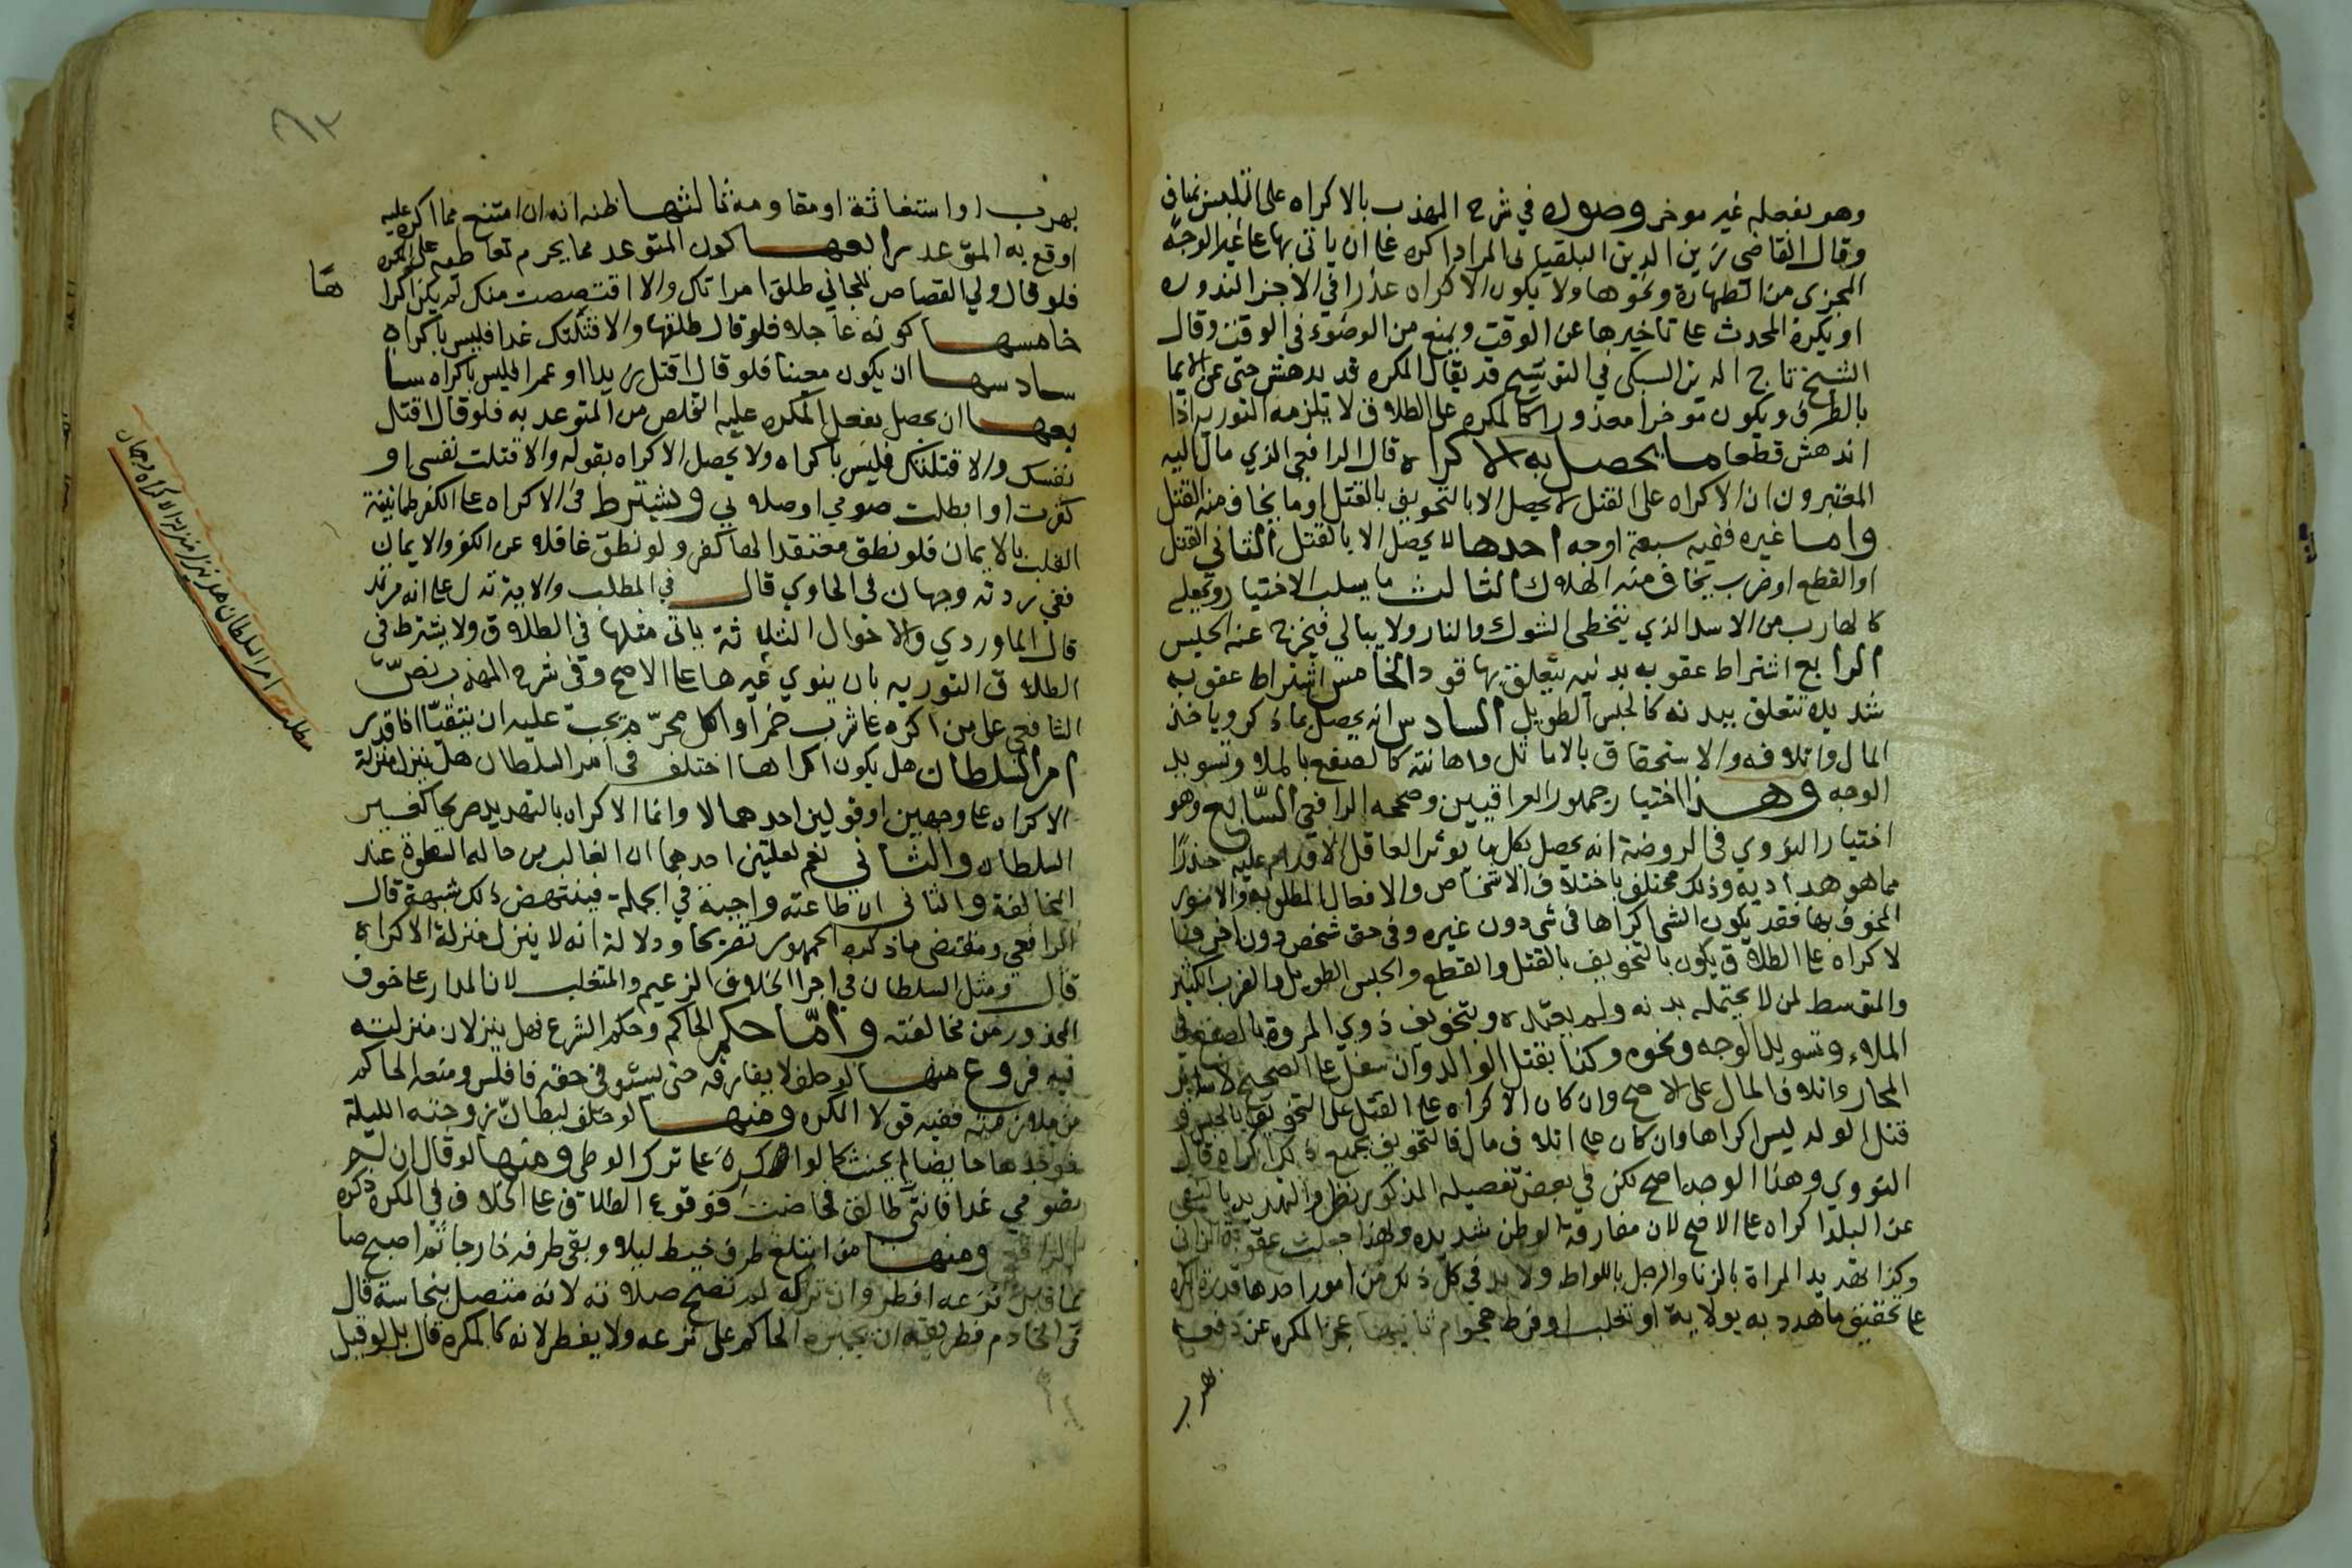 وهو بفعله غير موخر وصوره في شرح المهذب بالاكراه على التلبس بمناف
وقال القاضي زين الدين البلقيني المراد اكره على ان ياتي بها على غير الوجه
المجزى من الطهارة ونحوها ولا يكون الاكراه عذرا في الاجزا لندوره
او يكره المحدث على تاخيرها عن الوقت ويمنع من الوضوء في الوقت وقال
الشيخ تاج الدين السبكى في التوشيح قد يقال المكره قد يدهش حتى عن الايما
بالطرف ويكون موخرا معذورا كالمكره على الطلاق لا يلزمه التورية اذا
اندهش قطعا ما يحصل به الاكراه قال الرافعي الذي مال اليه
المعتبرون ان الاكراه على القتل لا يحصل الا بالتخويف بالقتل او ما يخاف منه القتل
واما غيره ففيه سبعة اوجه احدها لا يحصل الا بالقتل الثاني القتل
او القطع او ضرب يخاف منه الهلاك الثالث ما يسلب الاختيار ويجعله
كالهارب من الاسد الذي يتخطى الشوك والنار ولا يبالي فيخرج عنه الحبس
الرابع اشتراط عقوبه بدنيه يتعلق بها قود الخامس اشتراط عقوبه
شديدة تتعلق ببدنه كالحبس الطويل السادس انه يحصل بما ذكر وباخذ
المال واتلافه والاستحقاق بالاماثل واهانته كالصفع بالملاء وتسويد
الوجه وهذا اختيار جمهور العراقيين وصححه الرافعي السابع وهو
اختيار النووي في الروضة انه يحصل بكل ما يوثر العاقل الاقدام عليه حذرا
مما هدد به وذلك مختلف باختلاف الاشخاص والافعال المطلوبه والامور
المخوف بها فقد يكون الشي اكراها في شي دون غيره وفي حق شخص دون اخر فا
لاكراه على الطلاق يكون بالتخويف بالقتل والقطع والحبس الطويل والضرب الكثير
والمتوسط لمن لا يحتمله بدنه ولم يعتده وبتخويف ذوي المروة بالصفع في
الملاء وتسويد الوجه ونحوه وكذا بقتل الوالد وان سفل على الصحيح لا ساير
المحارم واتلاف المال على الاصح وان كان الاكراه على القتل على التخويف بالحبس و
قتل الولد ليس اكراها وان كان على اتلاف مال فالتخويف بجميع ذلك اكراه قال
النووي وهذا الوجه اصح لكن في بعض تفصيله المذكور نظر والتهديد بالنفي
عن البلد اكراه على الاصح لان مفارقة الوطن شديده ولهذا جعلت عقوبة الزاني
وكذا تهديد المراة بالزنا والرجل باللواط ولا بد في كل ذلك من امور احدها قدرة المكره
على تحقيق ما هدد به بولاية او تغلب او فرط هجوم ثانيها عجز المكره عن دفعه
بهرب
بهرب او استغاثة او مقاومة ثالثها ظنه انه ان امتنع مما اكره عليه
اوقع به المتوعد رابعها كون المتوعد مما يحرم تعاطيه على المكره
فلو قال ولي القصاص للجاني طلق امراتك والا اقتصصت منك لم يكن اكرا
ها
خامسها كونه عاجلا فلو قال طلقها والا قتلتك غدا فليس باكراه
سادسها ان يكون معينا فلو قال اقتل زيدا او عمرا فليس باكراه سا
بعها ان يحصل بفعل المكره عليه التخلص من المتوعد به فلو قال اقتل
نفسك والا قتلتك فليس باكراه ولا يحصل الاكراه بقوله والا قتلت نفسي او
كفرت او ابطلت صومي او صلوتي ويشترط في الاكراه على الكفر طمانينة
القلب بالايمان فلو نطق معتقدا لها كفر ولو نطق غافلا عن الكفر والايمان
ففي ردته وجهان في الحاوي قال في المطلب والاية تدل على انه مرتد
قال الماوردي والاحوال الثلاثة ياتي مثلها في الطلاق ولا يشترط في
الطلاق التورية بان ينوي غيرها على الاصح وفي شرح المهذب نص
الشافعي على من اكره على شرب خمر او اكل محرم يجب عليه ان يتقيا اذا قدر
امر السلطان هل يكون اكراها اختلف في امر السلطان هل ينزل منزلة
الاكراه على وجهين او قولين احدهما لا وانما الاكراه بالتهديد صريحا كغير
السلطان والثاني نعم لعلتين احدهما ان الغالب من حاله السطوة عند
المخالفة والثاني ان طاعته واجبة في الجملة فينتهض ذلك شبهة قال
الرافعي ومقتضى ما ذكره الجمهور تصريحا ودلالة انه لا ينزل منزلة الاكراه
قال ومثل السلطان في اجرا الخلاف الزعيم والمتغلب لان المدار على خوف
المحذور من مخالفته واما حكم الحاكم وحكم الشرع فهل ينزلان منزلته
فيه فروع منها لو حلف لا يفارقه حتى يستوفي حقه فافلس ومنعه الحاكم
من ملازمته ففيه قولا المكره ومنها لو حلف ليطان زوجته الليلة
فوجدها حايضا لم يحنث كما لو اكره على ترك الوطي ومنها لو قال ان لم
تصومي غدا فانتي طالق فحاضت فوقوع الطلاق على الخلاف في المكره ذكره
الرافعي ومنها من ابتلع طرف خيط ليلا وبقي طرفه خارجا ثم اصبح صا
يما فان نزعه افطر وان تركه لم تصح صلاته لانه متصل بنجاسة قال
في الخادم فطريقه ان يجبره الحاكم على نزعه ولا يفطر لانه كالمكره قال بل لو قيل
مطلب امر السلطان هل ينزل منزلة الاكراه وجهان